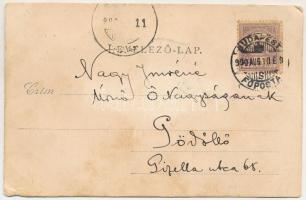 11
BUDAPEST
900 AUG 10 E
FŐPOSTA
LEVELEZŐ-LAP.
Nagy Imréné
Czím
Úrnő Ő Nagyságának
Gödöllő
Gizella utca 68.